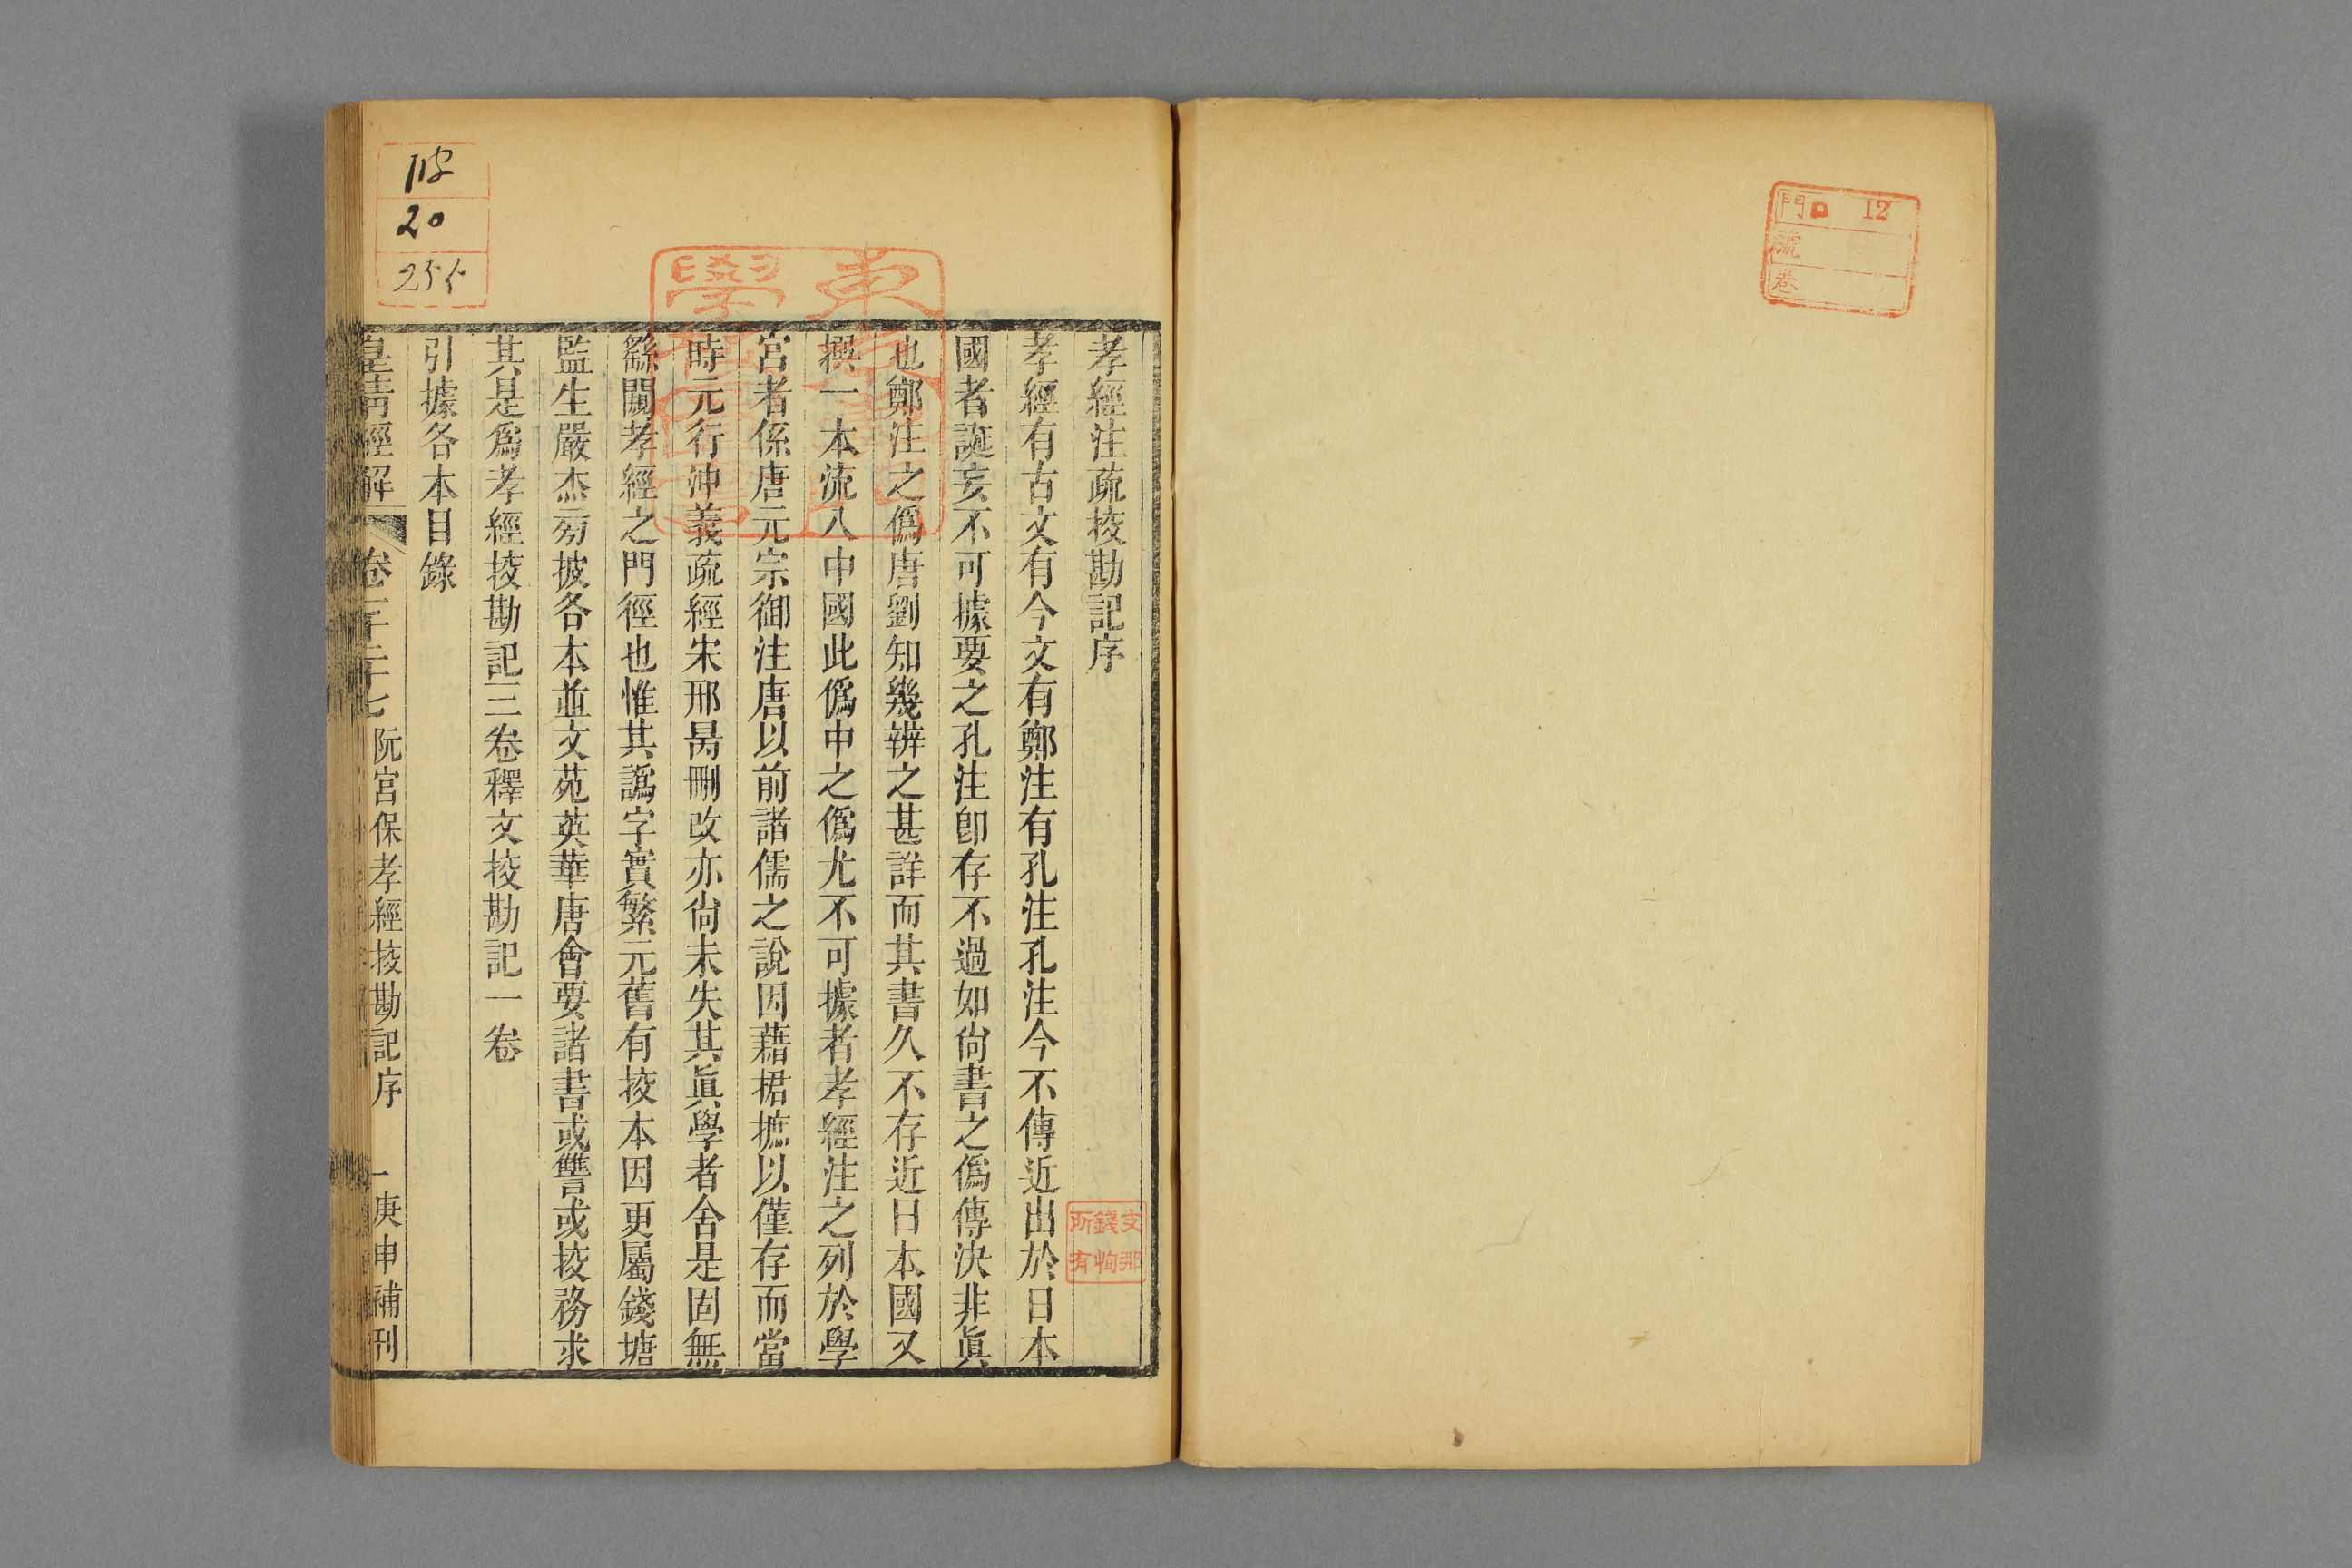 門 12
號
卷
孝經注疏挍勘記序
孝經有古文有今文有鄭注有孔注孔注今不傳近出於日本
國者誕妄不可據要之孔注卽存不過如尙書之僞傳決非眞
也鄭注之僞唐劉知幾辨之甚詳而其書久不存近日本國又
撰一本流入中國此僞中之僞尤不可據者孝經注之列於學
宮者係唐元宗御注唐以前諸儒之說因藉捃摭以僅存而當
時元行沖義疏經宋邢昺刪改亦尙未失其眞學者舍是固無
繇闚孝經之門徑也惟其譌字實繁元舊有挍本因更屬錢塘
監生嚴杰㫄披各本並文苑英華唐會要諸書或讐或挍務求
其是爲孝經挍勘記三卷釋文挍勘記一卷
引據各本目錄
皇淸經解 卷一千二十七 阮宮保孝經挍勘記序 一 庚申補刊
支那
錢恂
所有
20
255